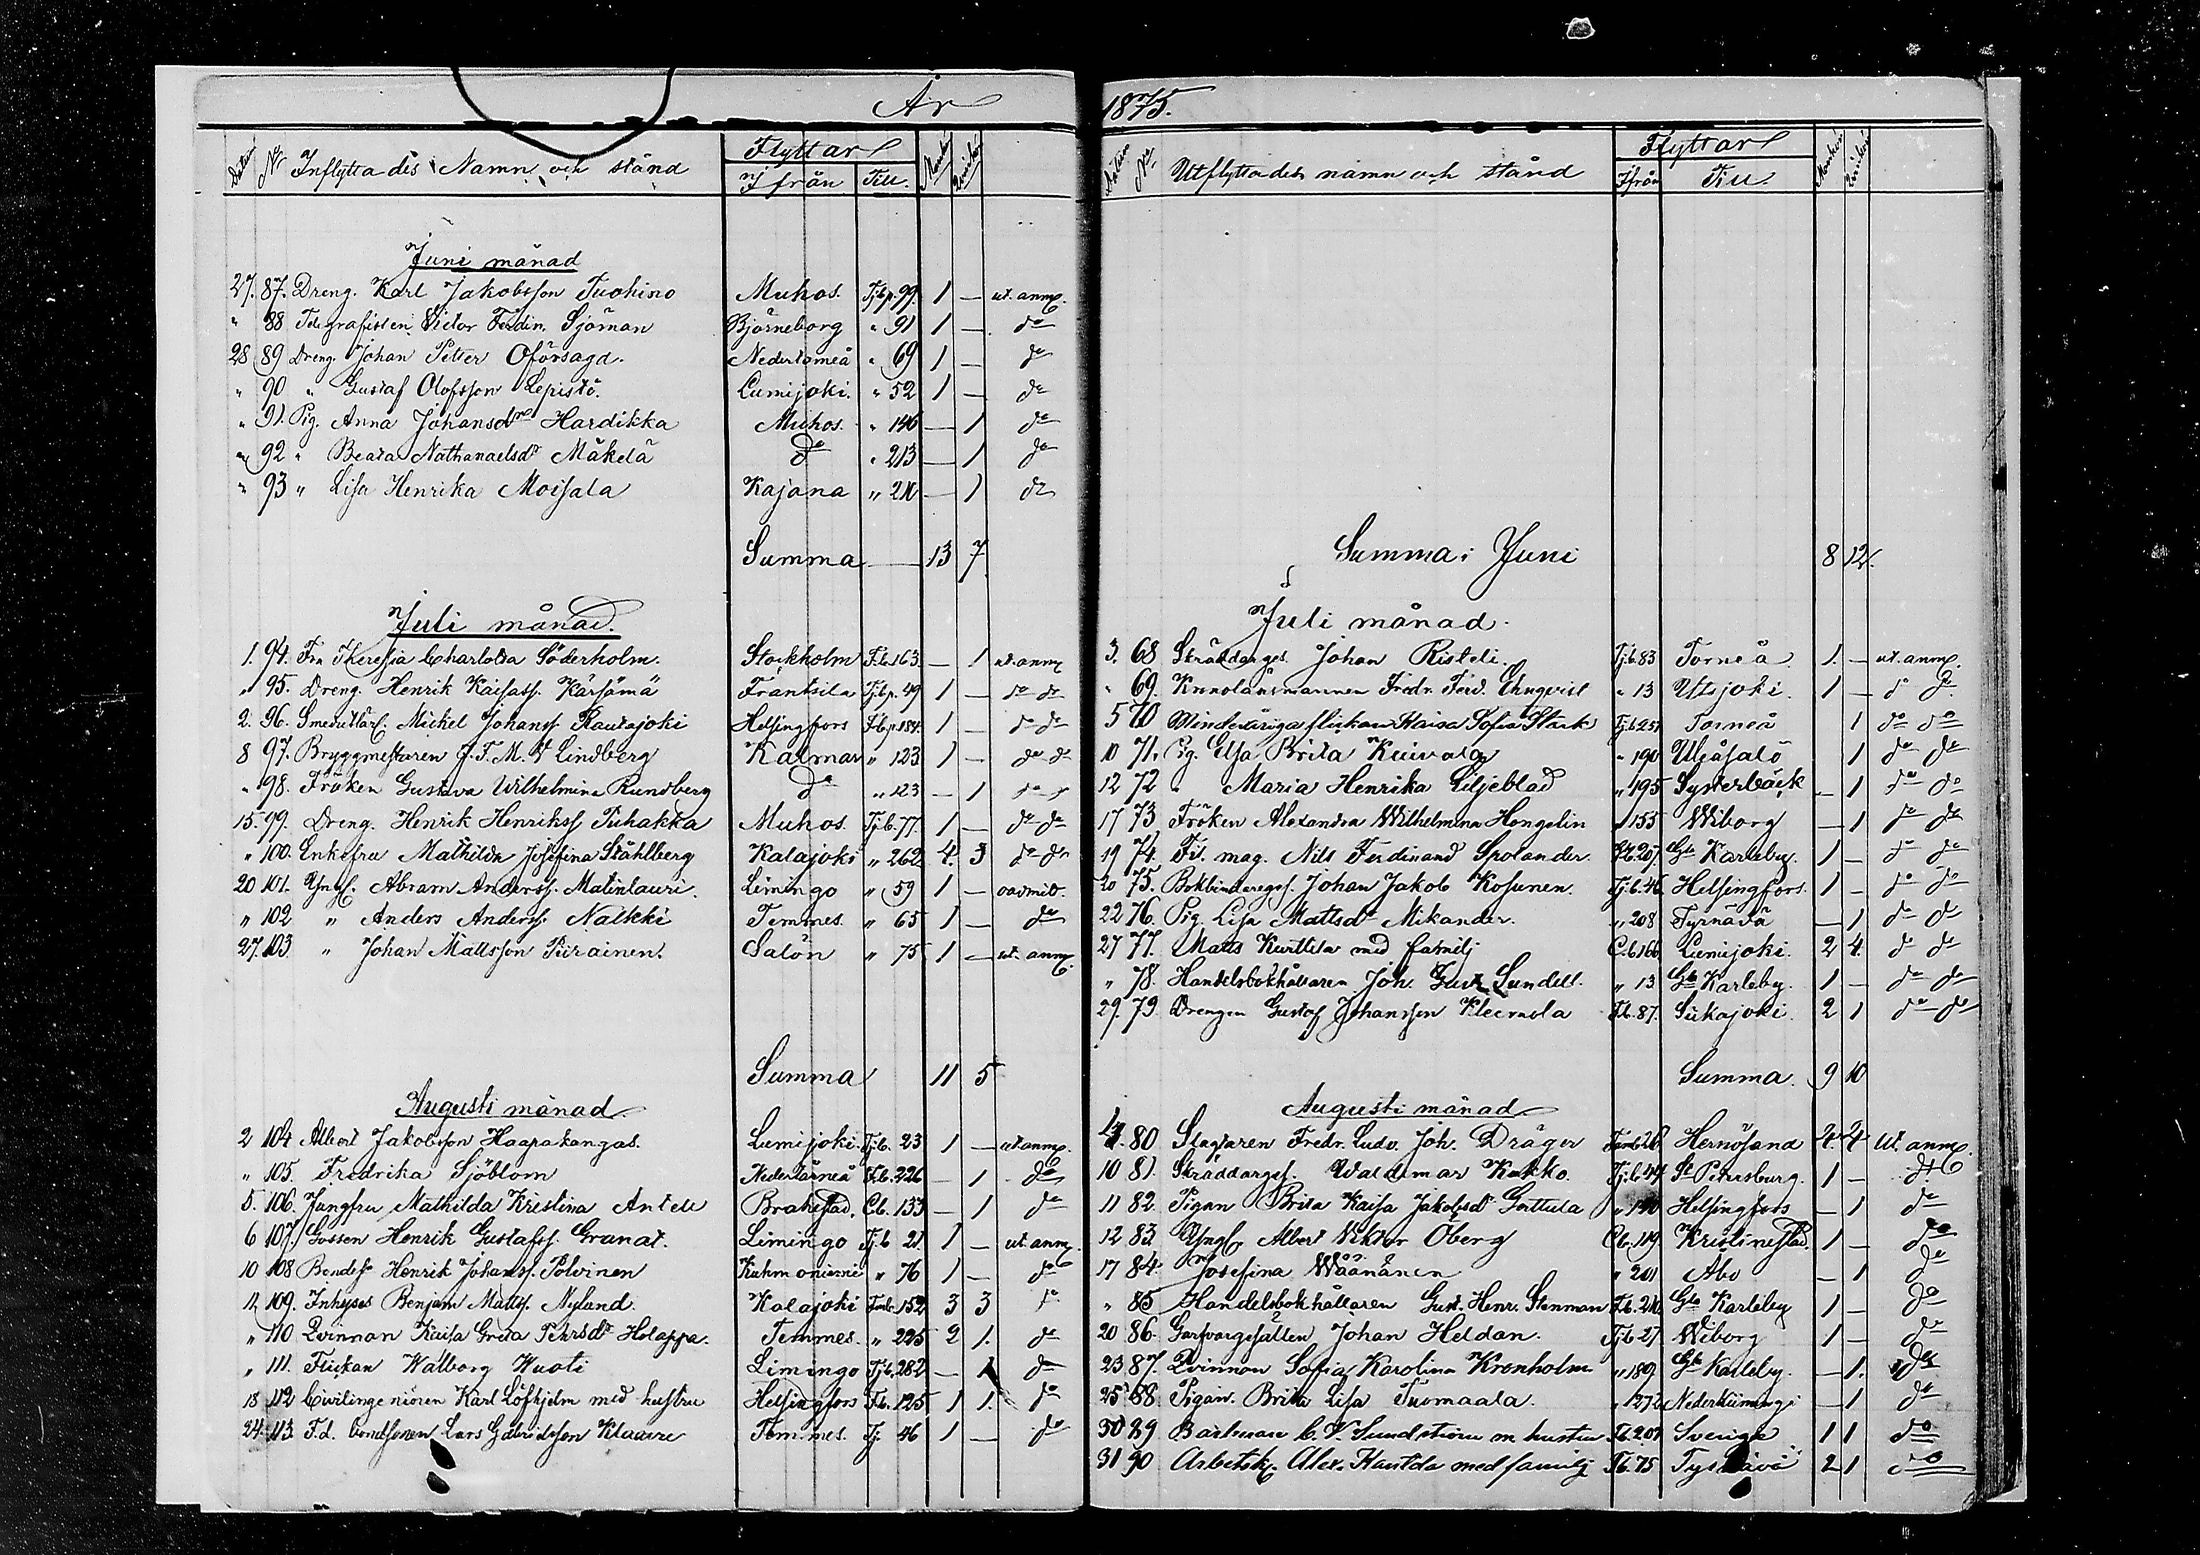 År
Datum No Inflyttades Namn och stånd Flyttar Ifrån Till Mankön Qvinkön
Juni månad
27. 87. Dreng. Karl Jakobsson Tuohino Muhos. Tjb p. 99. 1 — ut. anmg.
" 88 Telegrafisten Victor Ferdin. Sjöman Björneborg " 91 1 — do
28 89 Dreng. Johan Petter Oförsagd. Nedertorneå " 69 1 — do
" 90 " Gustaf Olofsson Lepistö. Lumijoki. " 52 1 — do
" 91. Pig. Anna Johansdr Hardikka Muhos. " 146 — 1 do
" 92 " Beata Nathanaelsdr Mäkelä do " 213 — 1 do
" 93 " Lisa Henrika Moisala Kajana " — 1 do
Summa — 13 7
Juli månad.
1. 94. Fru Theresia Charlotta Söderholm. Stockholm F.b. 163. — 1 ut. anmg
" 95. Dreng. Henrik Kaisass. Kärsämä Frantsila Tjb p. 49 1 — do do
2. 96. Mickel Johanss Rautajoki Helsingfors 1 — do do
8 97. Bryggmestaren J. F. M. Lindberg Kalmar " 123 1 — do do
" 98. Fröken Gustava Wilhelmina Rundberg do " 123 — 1 do do
15. 99. Dreng. Henrik Henrikss Puhakka Muhos. Tjb. 77. 1 — do do
" 100. Enkefru Mathilda Josefina Ståhlberg Kalajoki " 262 4. 3 do do
20 101. Yngl. Abram Anderss. Matinlauri. Limingo " 59 1 —
" 102 " Anders Anderss. Nalkki Temmes. " 65 1 — do
27. 103. " Johan Mattsson Piirainen. Salön " 75 1 — ut. anmg.
Summa 11 5
Augusti månad
2 104 Albert Jakobsson Haapakangas. Lumijoki. Tjb. 23 1 — ut anmg.
" 105. Fredrika Sjöblom Nedertårneå F.b. 226 — 1 do
5. 106. Jungfru Mathilda Kristina Antell Brahestad, Cb. 133 — 1 do
6 107. Gossen Henrik Gustafss. Granat. Limingo Tjb 21. 1 — ut. anmg.
10 108 Henrik Johanss. Polvinen Kuhmoniemi " 76 1 — do
12 109. Inhyses Benjam Matts. Nyland. Kalajoki 152 3 3 do
" 110 Qvinnan Kaisa Greta Petrsdr Holappa. Temmes. " 225 2 1. do
" 111. Flickan Walborg Wuoti Limingo Tjb. 282 — 1 do
18 112 Civilingeniören Karl Löfhjelm med hustru Helsingfors F.b. 125 1 1. do
24. 113. F.d. Lars Gabrielsson Klaavu Temmes. Tj 46 1 — do
1875.
Datum No Utflyttades namn och stånd Flyttar Ifrån Till Mankön Qvinkön
Summa i Juni 8 12.
Juli månad.
3. 68 Skräddarges. Johan Risteli. Tj.b. 83 Torneå 1. — ut. anmg.
" 69. Kronolänsmannen Fredr. Ferd. " 13 Utsjoki. 1 — do do
5 70 Minderåriga flickan Kaisa Sofia Stark Tj.b 257 Torneå 1 do do
10 71. Pig. Elsa Brita Kuivala " 190 Uleåsalo 1 do do
12 72 " Maria Henrika Liljeblad " 195 Systerbäck — 1 do do
17 73 Fröken Alexandra Wilhelmina Hongelin " 155 Wiborg — 1 do do
19 74. Fil. mag. Nils Ferdinand Spolander. F.b. 207. Gla Karleby. 1 — do do
20 75. Bokbinderegs. Johan Jakob Kosunen. Tj.b. 46 Helsingfors. 1 — do do
22 76. Pig. Lisa Mattsdr Mikander. " 208 Tyrnävä — 1 do do
27 77. Matts Kurttila med familj C.b 166 Lumijoki. 2 4. do do
" 78. Handelsbokhållaren Joh. Gust. Sundell. " 13 Gla Karleby. 1 — do do
29. 79. Drengen Gustaf Johansson Kleemola F.b. 87. Siikajoki. 2 1 do do
Summa. 9 10
Augusti månad
4. 80 Slagtaren Fredr. Ludv. Joh. Dräger Hernösand 4 4 Ut. anmg.
10 81. Skräddarges. Waldemar Kakko. Tj.b. 47 St Petersburg. 1 — do
11 82. Pigan Brita Kaisa Jakobsdr Gorttula " 190 Helsingfors — 1 do
12 83 Yngl Albert Viktor Öberg Cb. 119. Kristinestad. 1 — do
17 84. Josefina Wäänänen " 201 Åbo — 1 do
" 85 Handelsbokhållaren Gust. Henr. Stenman F.b. 210 Gla Karleby 1 — do
20 86. Garfvargesällen Johan Heldan. Tj.b 27 Wiborg 1 — do
23 87. Qvinnan Sofia Karolina Kronholm " 189. Gla Karleby. — 1. do
25 88. Pigan. Brita Lisa Tuomaala. " 272 Nederkiimingi 1 do
30 89. C. V. Sundström m hustru F.b. 207 Sverige 1 1 do
31 90 Arbetsk. Alex. Kantola med familj F.b. 75 Tyrnävä 2 1 do